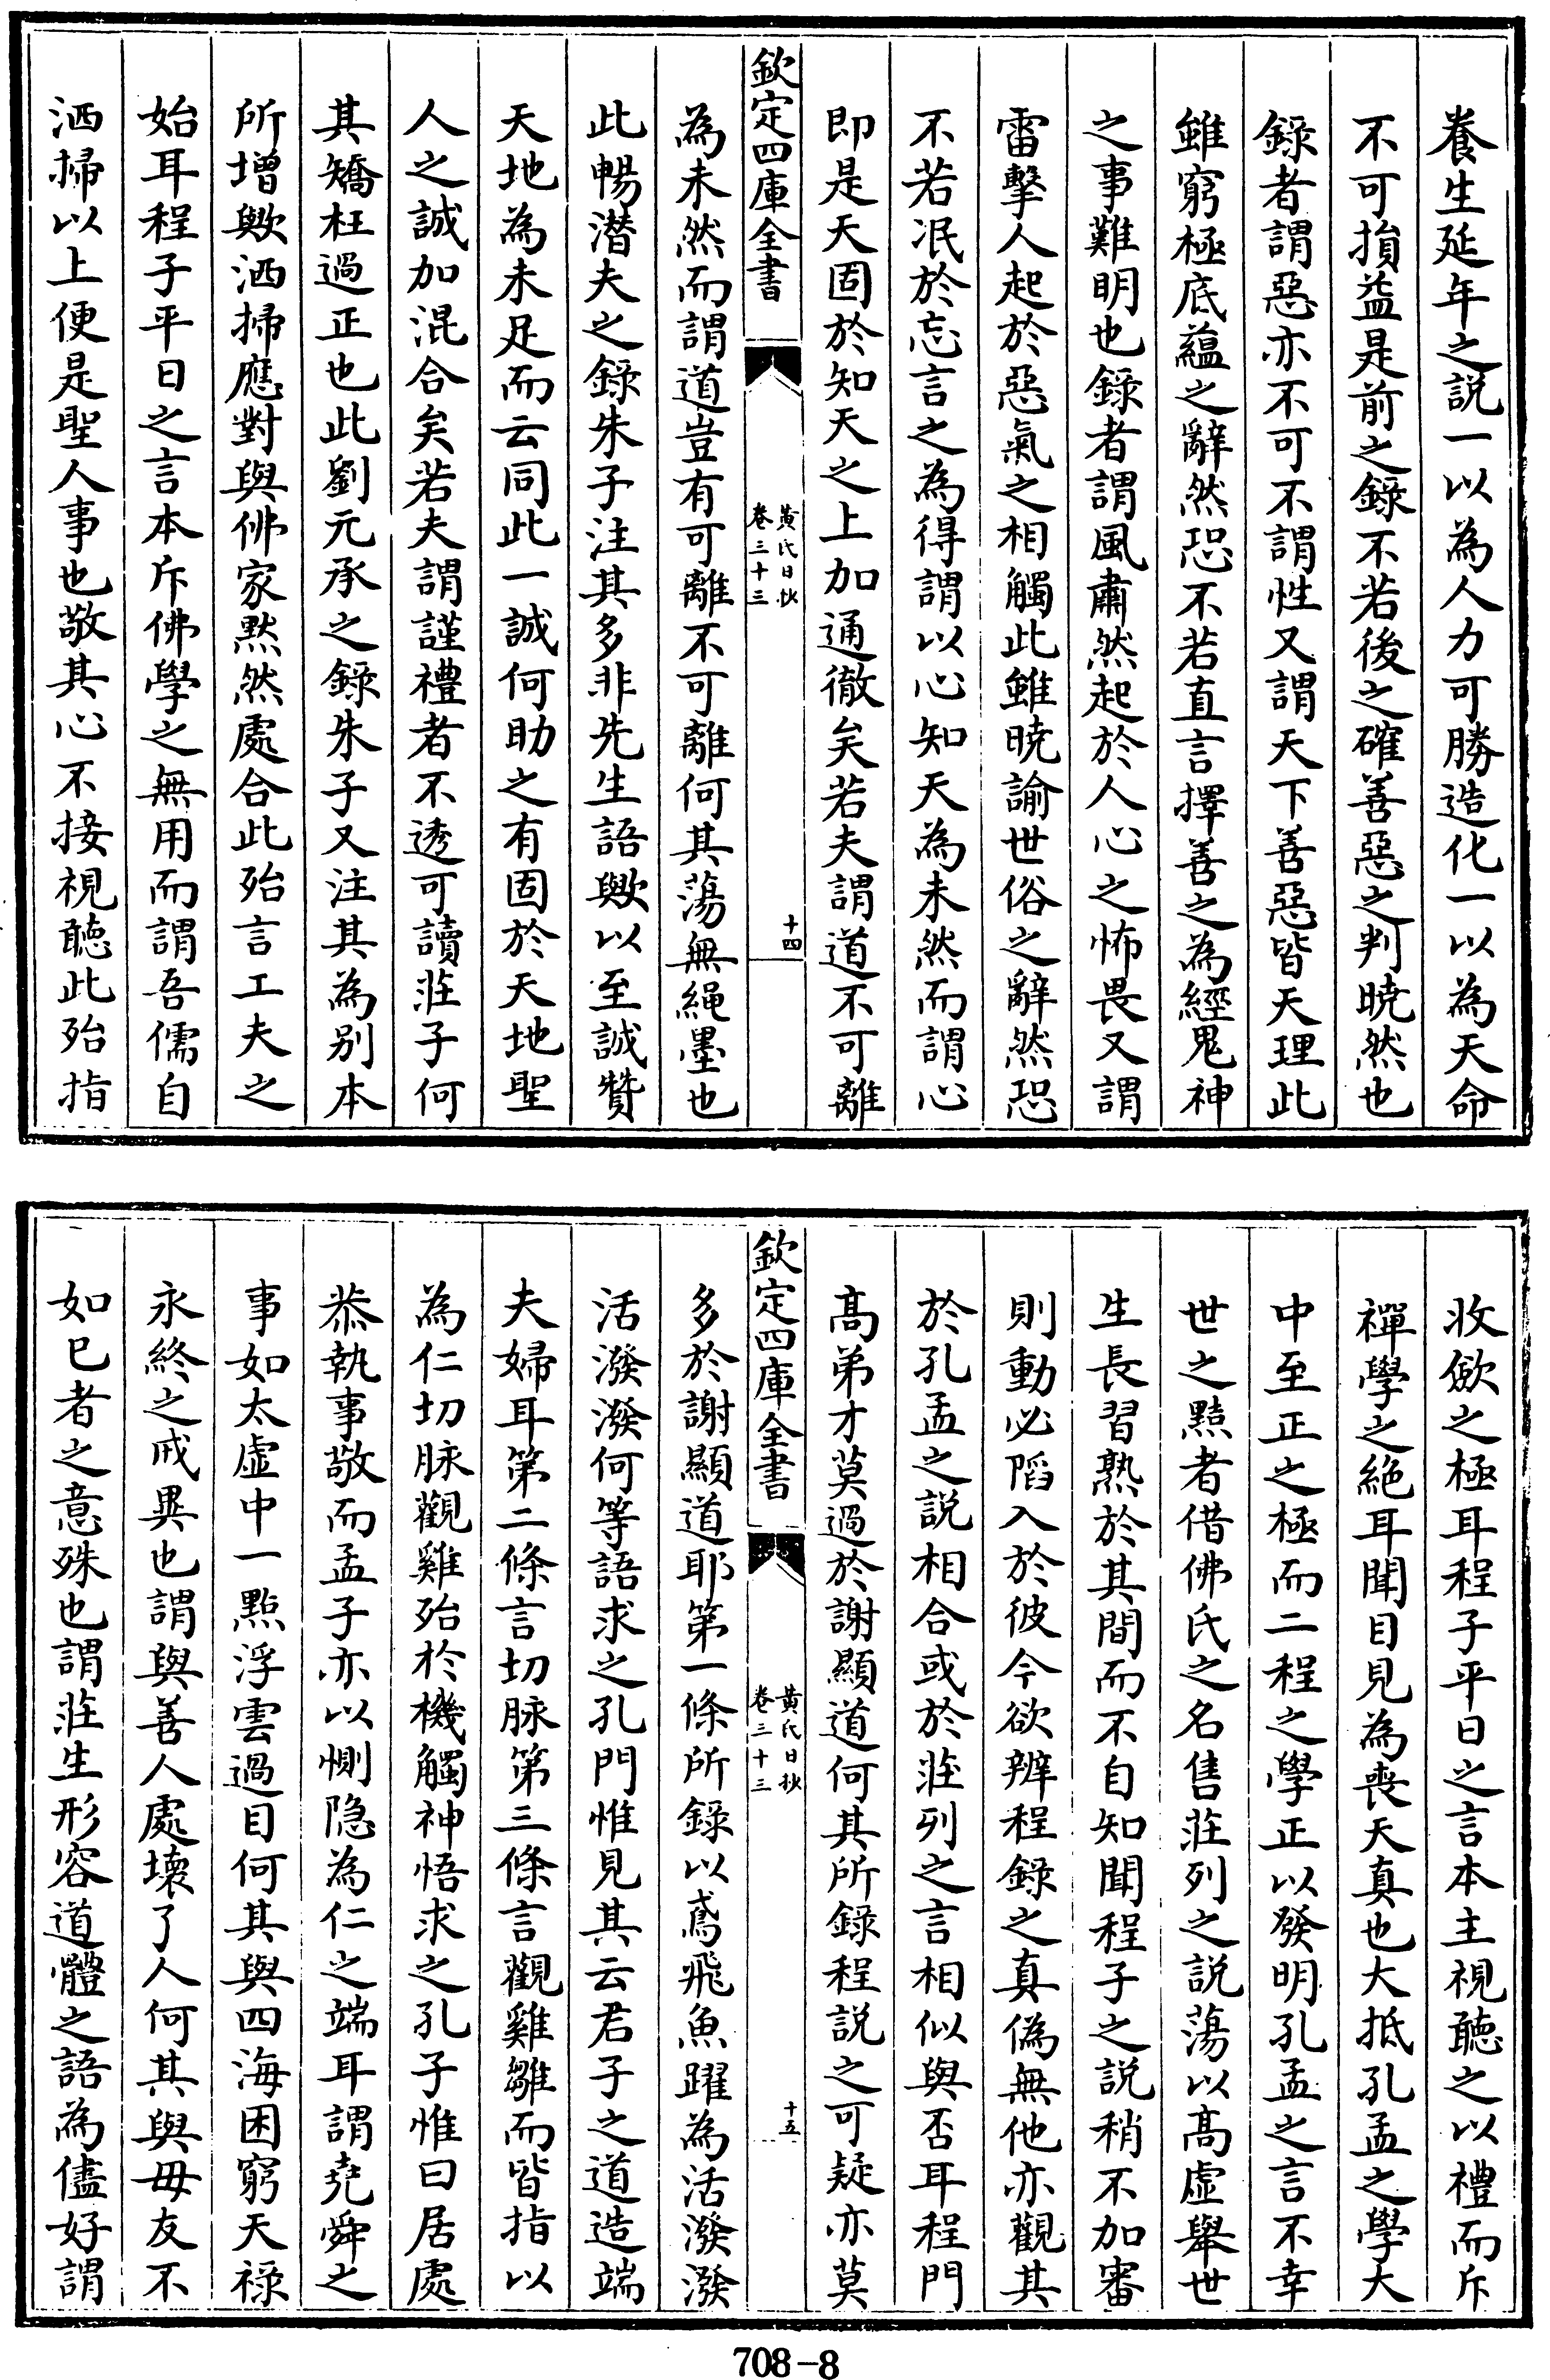 養生延年之説一以為人力可勝造化一以為天命
不可損益是前之錄不若後之確善惡之判曉然也
錄者謂惡亦不可不謂性又謂天下善惡皆天理此
雖窮極底蘊之辭然恐不若直言擇善之為經鬼神
之事難明也錄者謂風肅然起於人心之怖畏又謂
雷擊人起於惡氣之相觸此雖曉諭世俗之辭然恐
不若泯於忘言之為得謂以心知天為未然而謂心
即是天固於知天之上加通徹矣若夫謂道不可離
欽定四庫全書
黃氏日抄
卷三十三
十四
為未然而謂道豈有可離不可離何其蕩無繩墨也
此暢潛夫之錄朱子注其多非先生語歟以至誠贊
天地為未足而云同此一誠何助之有固於天地聖
人之誠加混合矣若夫謂謹禮者不透可讀莊子何
其矯枉過正也此劉元承之錄朱子又注其為别本
所增歟洒掃應對與佛家黙然處合此殆言工夫之
始耳程子平日之言本斥佛學之無用而謂吾儒自
洒掃以上便是聖人事也敬其心不接視聽此殆指
收歛之極耳程子平日之言本主視聽之以禮而斥
禪學之絶耳聞目見為喪天真也大抵孔孟之學大
中至正之極而二程之學正以發明孔孟之言不幸
世之黠者借佛氏之名售莊列之説蕩以髙虚舉世
生長習熟於其間而不自知聞程子之説稍不加審
則動必䧟入於彼今欲辨程錄之真偽無他亦觀其
於孔孟之説相合或於莊列之言相似與否耳程門
髙弟才莫過於謝顯道何其所錄程説之可疑亦莫
欽定四庫全書
黃氏日抄
卷三十三
十五
多於謝顯道耶第一條所錄以鳶飛魚躍為活潑潑
活潑潑何等語求之孔門惟見其云君子之道造端
夫婦耳第二條言切脉第三條言觀雞雛而皆指以
為仁切脉觀雞殆於機觸神悟求之孔子惟曰居處
恭執事敬而孟子亦以惻隐為仁之端耳謂堯舜之
事如太虚中一點浮雲過目何其與四海困窮天祿
永終之戒異也謂與善人處壞了人何其與毋友不
如已者之意殊也謂莊生形容道體之語為儘好謂
708-8